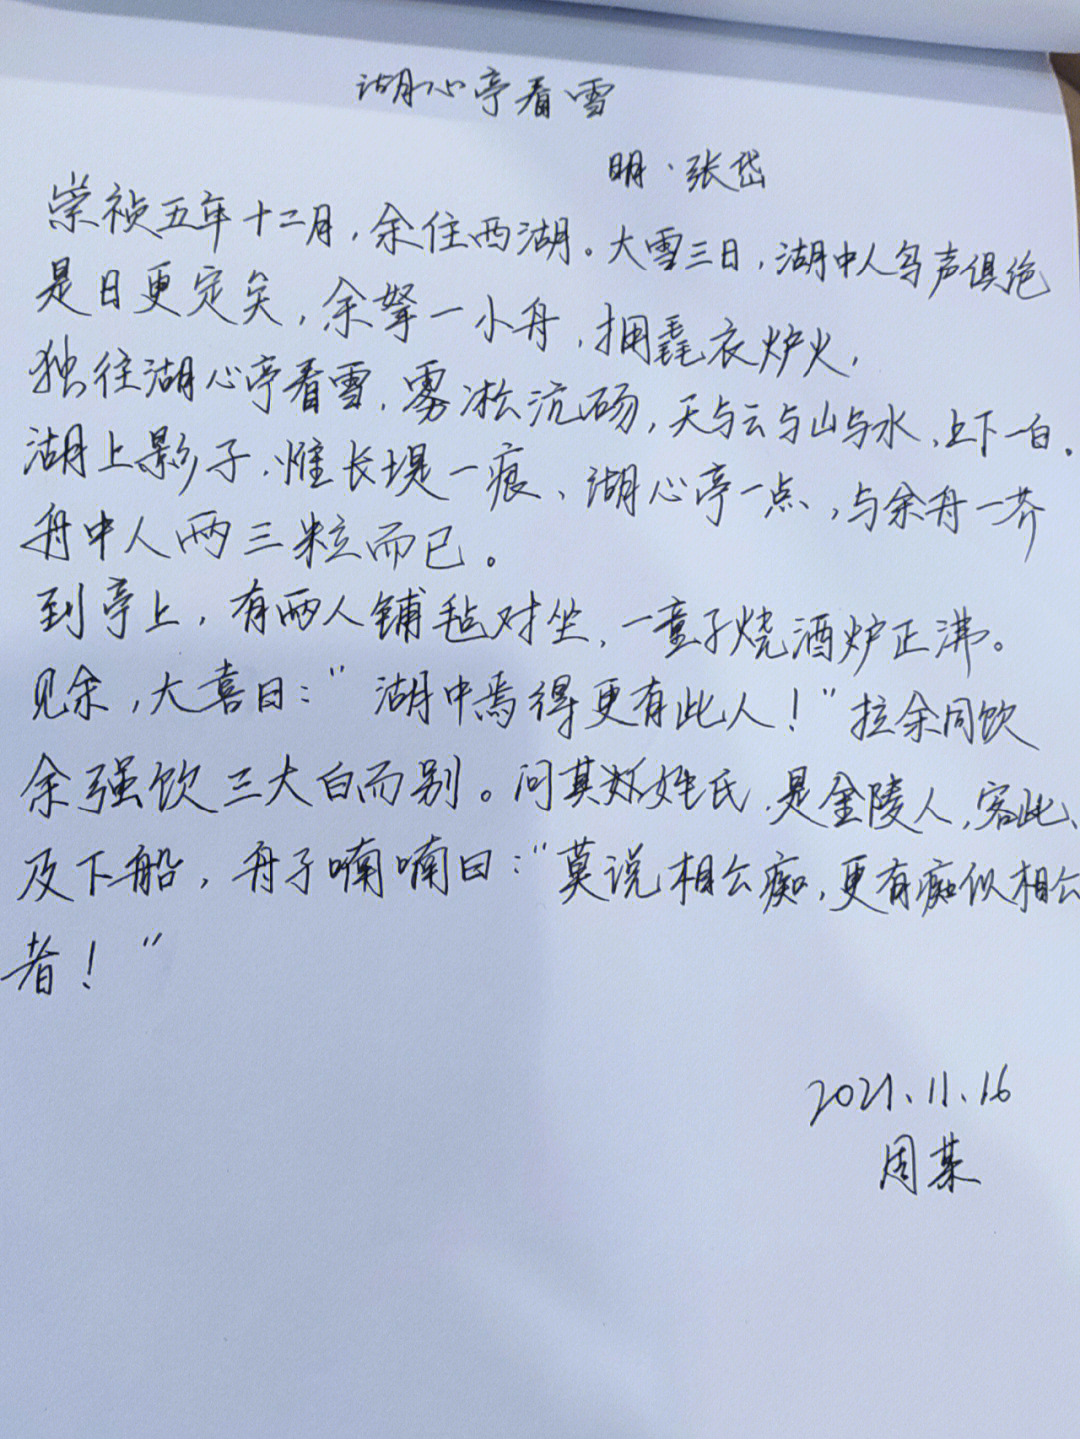 湖心亭看雪
明·张岱
崇祯五年十二月,余住西湖。大雪三日,湖中人鸟声俱绝
是日更定矣,余拏一小舟,拥毳衣炉火,
独往湖心亭看雪,雾凇沆砀,天与云与山与水,上下一白。
湖上影子,惟长堤一痕、湖心亭一点,与余舟一芥
舟中人两三粒而已。
到亭上,有两人铺毡对坐,一童子烧酒炉正沸。
见余,大喜曰:"湖中焉得更有此人!"拉余同饮
余强饮三大白而别。问其姓氏,是金陵人,客此、
及下船,舟子喃喃曰:"莫说相公痴,更有痴似相公
者!"
2021.11.16
周某